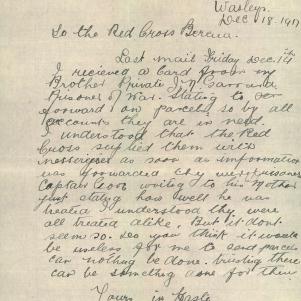 Wasleys.
Dec 18. 1917
To the Red Cross Bureau.
Last mail Friday Dec. 14th
I recieved a Card from my
Brother Private J. Garra
Prisoner of War. Stating to
forward on parcels, so by all
accounts they are in need.
I understood that the Red
Cross suplied them with
as soon as imformation
was forwarded they were prisoners
Captain writing to his Mother
just stating how well he was
treated I understood they were
all treated alike. But it dont
seem so. Do you think it would
be useless for me to send parcels
can nothing be done. trusting there
can be something done for them
Yours in haste